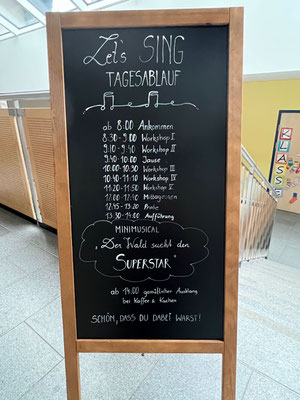 Let's SING
TAGESABLAUF
ab 8:00 Ankommen
8:30-9:00 Workshop I
9:10-9:40 Workshop II
9:40-10:00 Jause
10:00-10:30 Workshop III
10:40-11:10 Workshop IV
11:20-11:50 Workshop V
12:00-12:40 Mittagessen
12:45-13:20 Probe
13:30-14:00 Aufführung
MINIMUSICAL
„Der Wald sucht den
SUPERSTAR"
ab 14:00 gemütlicher Ausklang
bei Kaffee & Kuchen
SCHÖN, DASS DU DABEI WARST!
KLASSE